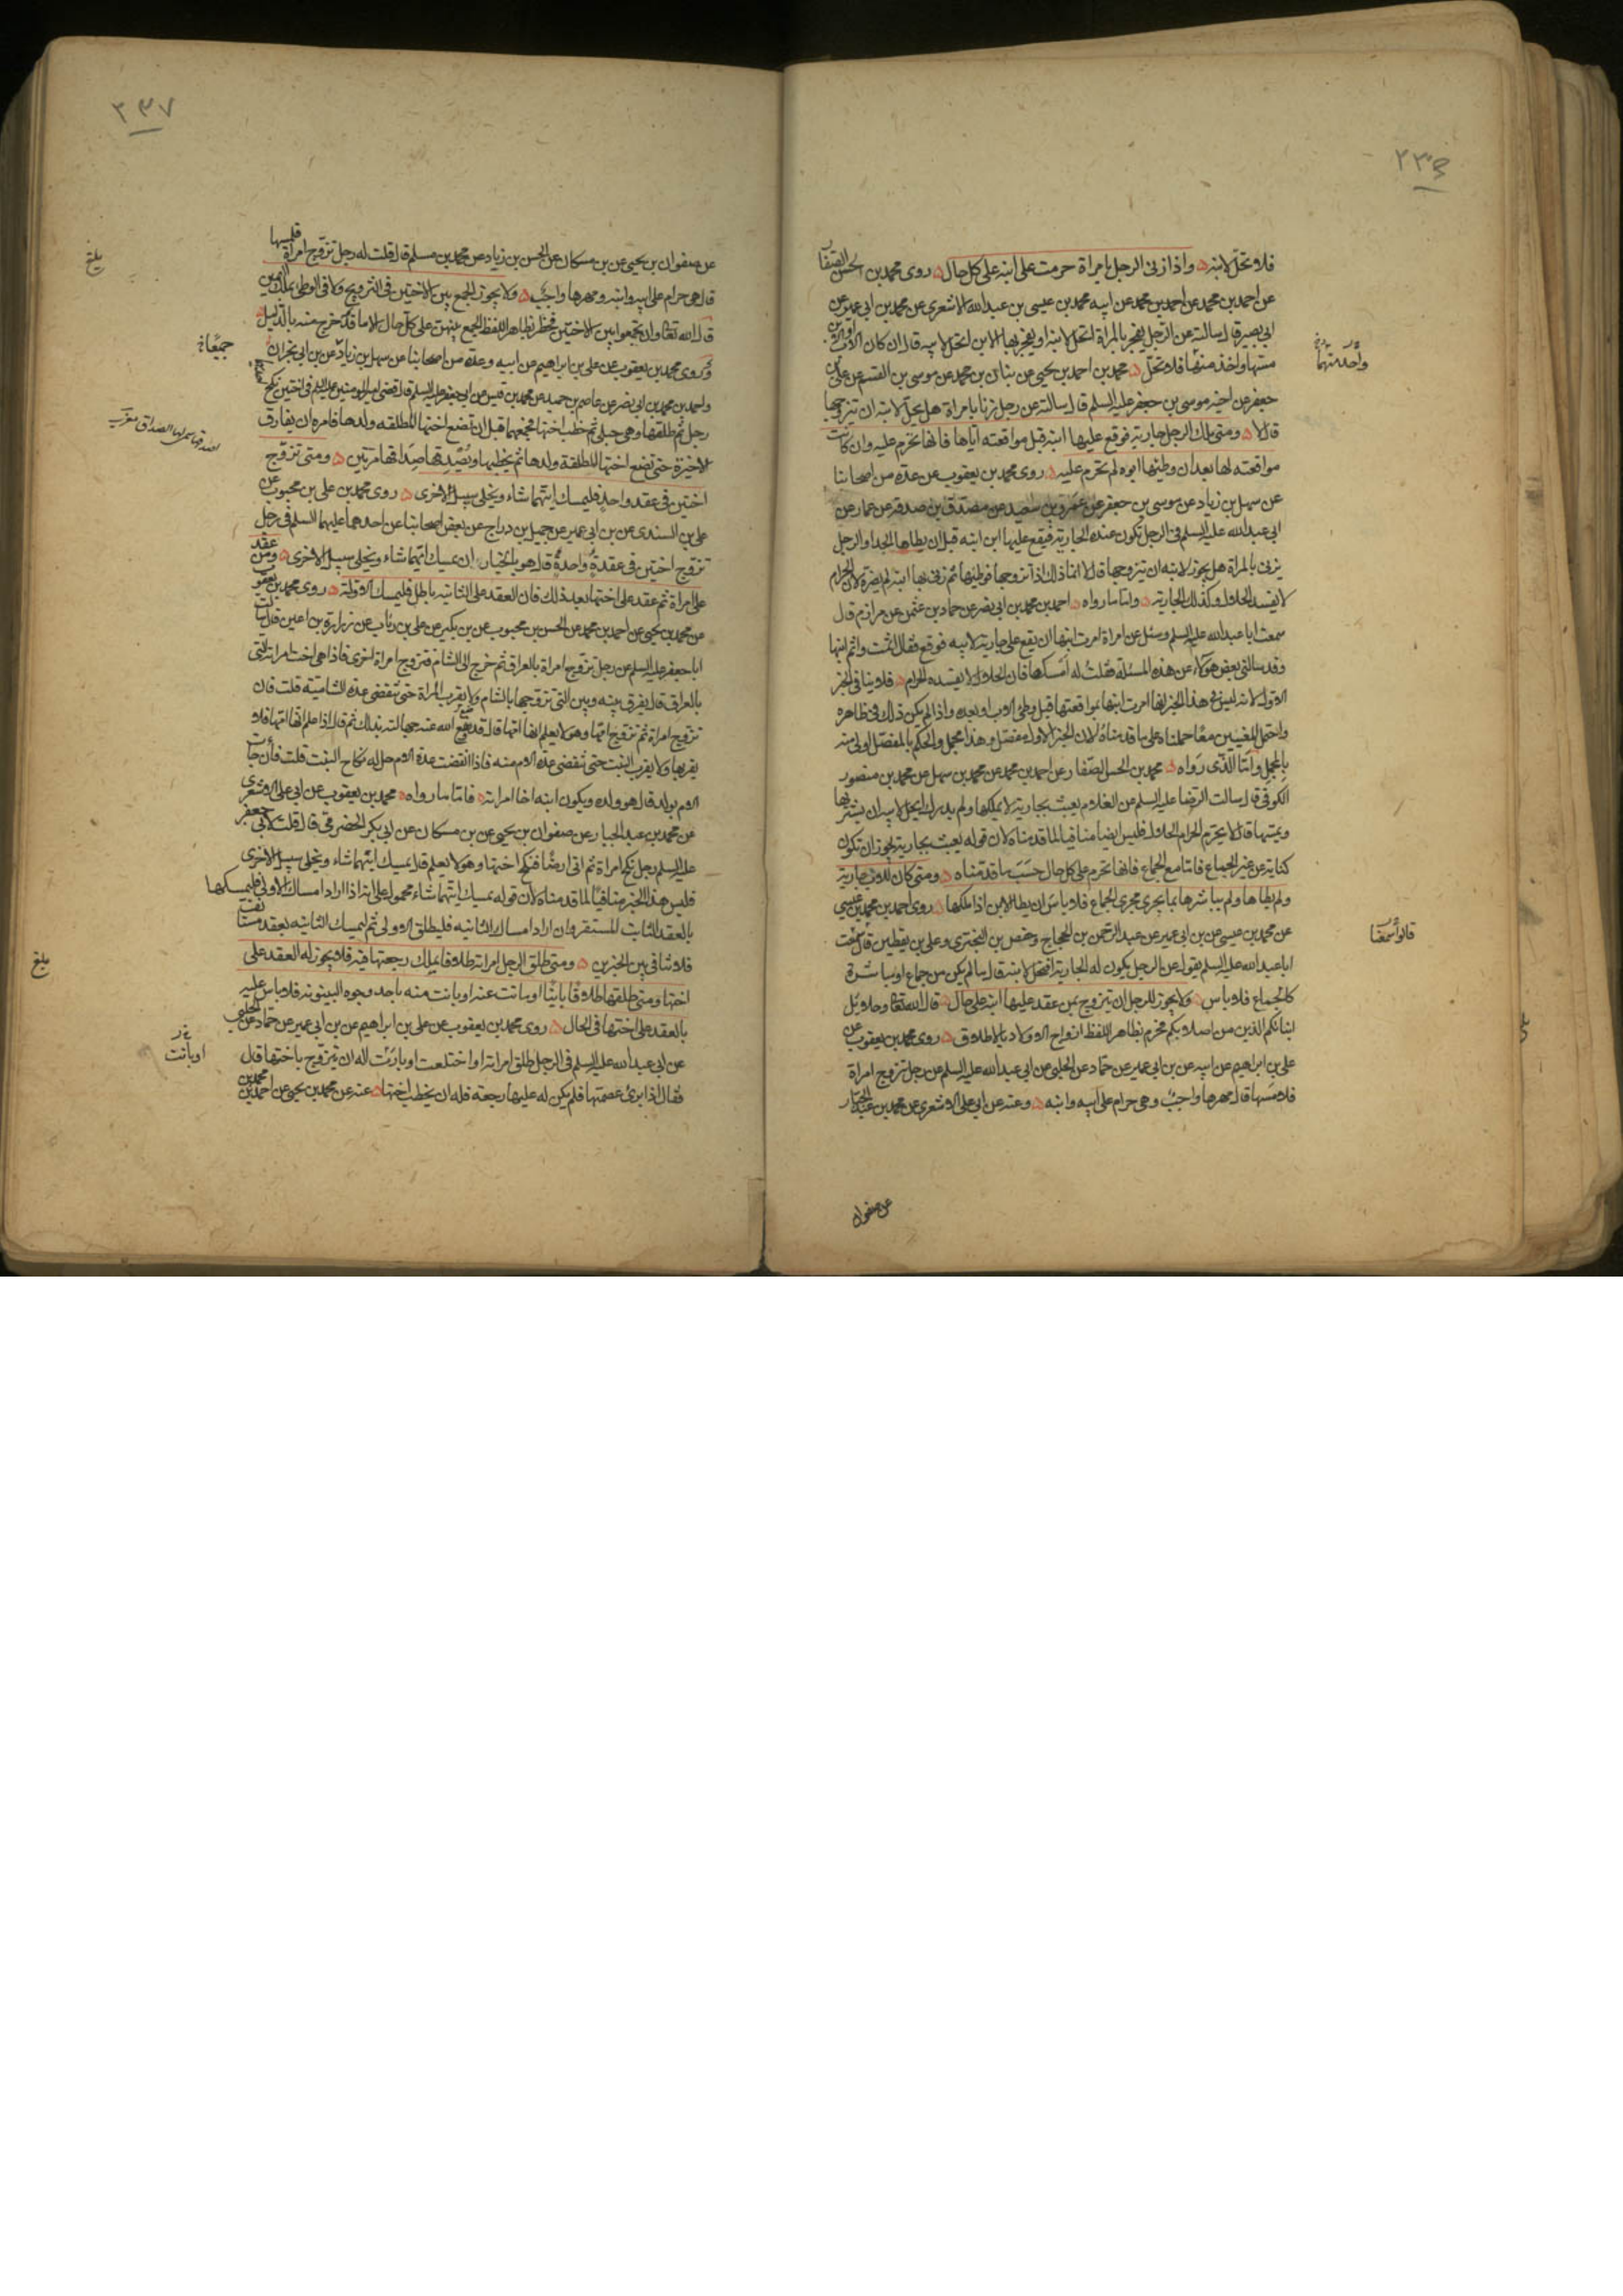 ٢٣٦
فلا تحل لابنه ه واذا زنى الرجل بامراة حرمت على ابنه على كل حال ه روى محمد بن الحسن الصفار
عن احمد بن محمد عن احمد بن محمد عن ابيه محمد بن عيسى بن عبدالله الاشعرى عن محمد بن ابى عمير عن
ابى بصير قال سالته عن الرجل يفجر بالمراة اتحل لابنه او يفجر بها الابن اتحل لابيه قال ان كان الاب او الابن
مسها واخذ منها فلا تحل ه محمد بن احمد بن يحيى عن بنان بن محمد عن موسى بن القسم عن على بن
جعفر عن اخيه موسى بن جعفر عليه السلم قال سالته عن رجل زنا بامراة هل يحل لابنه ان يتزوجها
قال لا ه ومتى ملك الرجل جارية فوقع عليها ابنه قبل مواقعته اياها فانها تحرم عليه وان كانت
مواقعته لها بعد ان وطيها ابوه لم تحرم عليه ه روى محمد بن يعقوب عن عدة من اصحابنا
عن سهل بن زياد عن موسى بن جعفر عن عمرو بن سعيد عن مصدق بن صدقة عن عمار عن
ابى عبدالله عليه السلم فى الرجل تكون عنده الجارية فيقع عليها ابن ابنه قبل ان يطاها الجد او الرجل
يزنى بالمراة هل يجوز لابنه ان يتزوجها قال لا انما ذلك اذا تزوجها فوطيها ثم زنى بها ابنه لم يضره لان الحرام
لا يفسد الحلال وكذلك الجارية ه واما ما رواه ه احمد بن محمد بن ابى نصر عن حماد بن عثمن عن مرازم قال
سمعت ابا عبدالله عليه السلم وسئل عن امراة امرت ابنها ان يقع على جارية لابيه فوقع فقال اثمت واثم ابنها
وقد سالنى بعض هؤلاء عن هذه المسئلة فقلت له امسكها فان الحلال لا يفسده الحرام ه فلا ينافى الخبر
الاول لانه ليس فى هذا الخبر انها امرت ابنها بمواقعتها قبل وطئ الاب او بعده واذا لم يكن ذلك فى ظاهره
واحتمل المعنيين معا حملناه على ما قدمناه لان الخبر الاول مفصل وهذا مجمل والحكم بالمفصل اولى منه
بالمجمل واما الذى رواه ه محمد بن الحسن الصفار عن احمد بن محمد عن محمد بن سهل عن محمد بن منصور
الكوفى قال سالت الرضا عليه السلم عن الغلام يعبث بجارية لا يملكها ولم يدرك ايحل لابيه ان يشتريها
ويمسها قال لا يحرم الحرام الحلال فليس ايضا منافيا لما قدمناه لان قوله يعبث بجارية يجوز ان تكون
كناية عن غير الجماع فاما مع الجماع فانها تحرم على كل حال حسب ما قدمناه ه ومتى كان للاب جارية
ولم يطاها ولم يباشرها بما يجرى مجرى الجماع فلا باس ان يطا الابن اذا ملكها ه روى احمد بن محمد بن عيسى
عن محمد بن عيسى عن بن ابى عمير عن عبد الرحمن بن الحجاج وحفص بن البخترى وعلى بن يقطين قال سمعت
ابا عبدالله عليه السلم يقول عن الرجل يكون له الجارية افتحل لابنه قال ما لم يكن من جماع او مباشرة
كالجماع فلا باس ه ولا يجوز للرجل ان يتزوج بمن عقد عليها ابنه على حال ه قال الله تعالى وحلائل
ابنائكم الذين من اصلابكم فحرم بظاهر اللفظ ازواج الاولاد بالاطلاق ه روى محمد بن يعقوب عن
على بن ابراهيم عن ابيه عن بن ابى عمير عن حماد عن الحلبى عن ابى عبدالله عليه السلم عن رجل تزوج امراة
فلامسها قال مهرها واجب وهى حرام على ابيه وابنه ه وعنه عن ابى على الاشعرى عن محمد بن عبد الجبار
عن صفوان
قالوا سمعنا
٢٣٧
عن صفوان بن يحيى عن بن مسكان عن الحسن بن زياد عن محمد بن مسلم قال قلت له رجل تزوج امراة فلمسها
قال هى حرام على ابيه وابنه ومهرها واجب ه ولا يجوز الجمع بين الاختين فى التزويج ولا فى الوطى بملك اليمين
قال الله تعالى وان تجمعوا بين الاختين فحظر بظاهر اللفظ الجمع بينهن على كل حال الا ما قد خرج منه بالدليل ه
وروى محمد بن يعقوب عن على بن ابراهيم عن ابيه وعدة من اصحابنا عن سهل بن زياد عن بن ابى نجران
واحمد بن محمد بن ابى نصر عن عاصم بن حميد عن محمد بن قيس عن ابى جعفر عليه السلم قال قضى امير المومنين عليه السلم فى اختين نكح
رجل ثم طلقها وهى حبلى ثم خطب اختها فجمعهما قبل ان تضع اختها المطلقه ولدها فامره ان يفارق
الاخيرة حتى تضع اختها المطلقة ولدها ثم يخطبها ويصدقها صداقها مرتين ه ومتى تزوج
اختين فى عقد واحد فليمسك ايتهما شاء ويخلى سبيل الاخرى ه روى محمد بن على بن محبوب عن
على بن السندى عن بن ابى عمير عن جميل بن دراج عن بعض اصحابنا عن احدهما عليهما السلم فى رجل
تزوج اختين فى عقدة واحدة قال هو بالخيار ان يمسك ايتهما شاء ويخلى سبيل الاخرى ه ومن عقد
على امراة ثم عقد على اختها بعد ذلك فان العقد على الثانيه باطل فليمسك الاولة ه روى محمد بن يعقوب
عن محمد بن يحيى عن احمد بن محمد عن الحسن بن محبوب عن بن بكير عن على بن رئاب عن زرارة بن اعين قال سالت
ابا جعفر عليه السلم عن رجل تزوج امراة بالعراق ثم خرج الى الشام فتزوج امراة اخرى فاذا هى اخت امراته التى
بالعراق قال يفرق بينه وبين التى تزوجها بالشام ولا يقرب المراة حتى تنقضى عدة الشاميه قلت فان
تزوج امراة ثم تزوج امها وهو لا يعلم انها امها قال قد وضع الله عنه جهالته بذلك ثم قال اذا علم انها امها فلا
يقربها ولا يقرب البنت حتى تنقضى عدة الام منه فاذا انقضت عدة الام حل له نكاح البنت قلت فان جاءت
الام بولد قال هو ولده ويكون ابنه اخا امراته ه فاما ما رواه ه محمد بن يعقوب عن ابى على الاشعرى
عن محمد بن عبد الجبار عن صفوان بن يحيى عن بن مسكان عن ابى بكر الحضرمى قال قلت لابى جعفر
عليه السلم رجل نكح امراة ثم اتى ارضا فنكح اختها وهو لا يعلم قال يمسك ايتهما شاء ويخلى سبيل الاخرى
فليس هذا الخبر منافيا لما قدمناه لان قوله يمسك ايتهما شاء محمول على انه اذا اراد امساك الاولى فليمسكها
بالعقد الثابت المستقر وان اراد امساك الثانيه فليطلق الاولى ثم ليمسك الثانيه بعقد مستانف
فلا تنافى بين الخبرين ه ومتى طلق الرجل امراته طلاقا يملك رجعتها فيه فلا يجوز له العقد على
اختها ومتى طلقها طلاقا باينا او ماتت عنه او بانت منه باحد وجوه البينونه فلا باس عليه
بالعقد على اختها فى الحال ه روى محمد بن يعقوب عن على بن ابراهيم عن بن ابى عمير عن حماد عن الحلبى
عن ابى عبدالله عليه السلم فى الرجل طلق امراته او اختلعت او بارئت اله ان يتزوج باختها قال
فقال اذا برئ عصمتها فلم يكن له عليها رجعة فله ان يخطب اختها ه عنه عن محمد بن يحيى عن احمد بن محمد بن
بلغ
جميعا
بلغ
او بانت